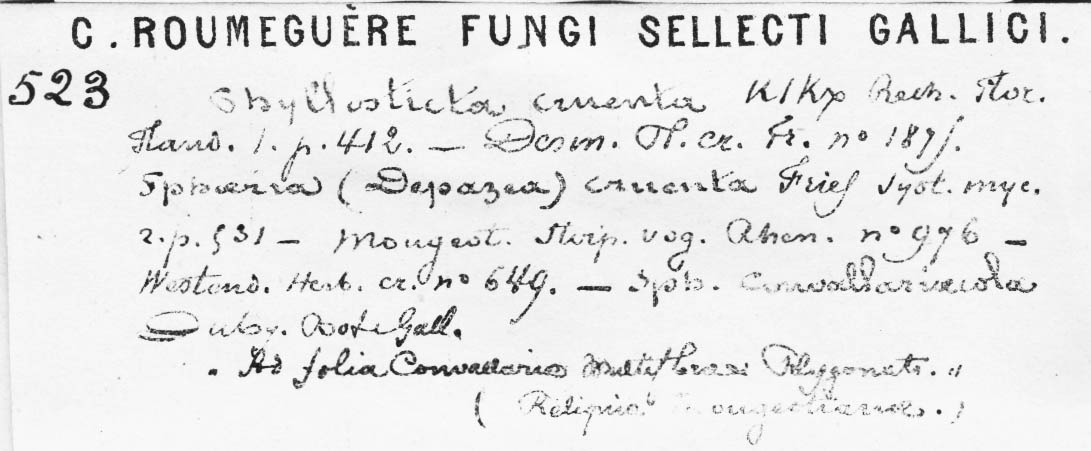 C. ROUMEGUÈRE FUNGI SELLECTI GALLICI.
523 Phyllosticta cruenta Kickx Rech. Flor.
Fland. 1. p. 412. — Desm. Pl. cr. Fr. nº 187
Sphæria (Depazea) cruenta Fries Syst. myc.
2. p. 531 — Mougeot. Stirp. vog. Rhen. nº 976 —
Westend. Herb. cr. nº 649. — Sph. Convallariæcola
Duby. Bot. Gall.
Ad folia Convallariæ Multifloræ Polygonat. "
( Reliquiæ Mougeotianæ. )